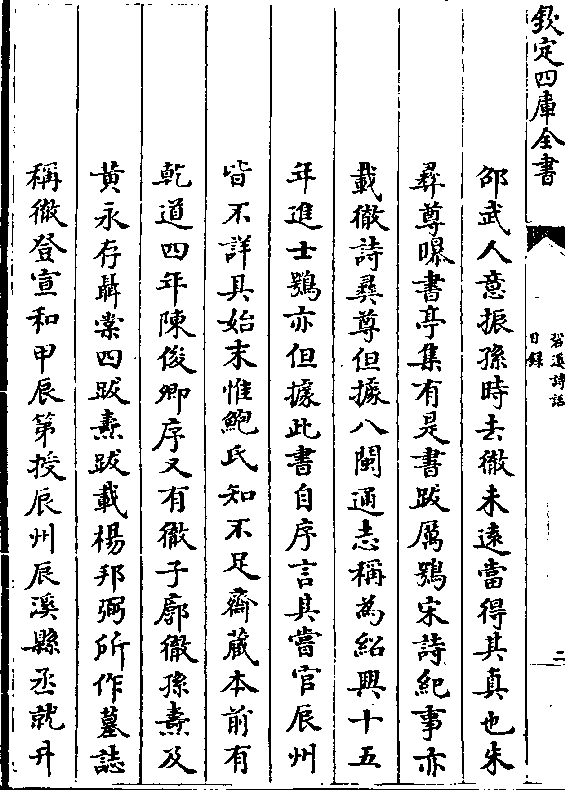 欽定四庫全書
䂬溪詩話
目錄
二
邵武人意振孫時去徹未遠當得其真也朱
彛尊曝書亭集有是書跋厲鶚宋詩紀事亦
載徹詩彛尊但據八閩通志稱為紹興十五
年進士鶚亦但據此書自序言其嘗官辰州
皆不詳具始末惟鮑氏知不足齋蔵本前有
乾道四年陳俊卿序又有徹子廓徹孫燾及
黄永存聶棠四跋燾跋載楊邦弼所作墓誌
稱徹登宣和甲辰第授辰州辰溪縣丞就升